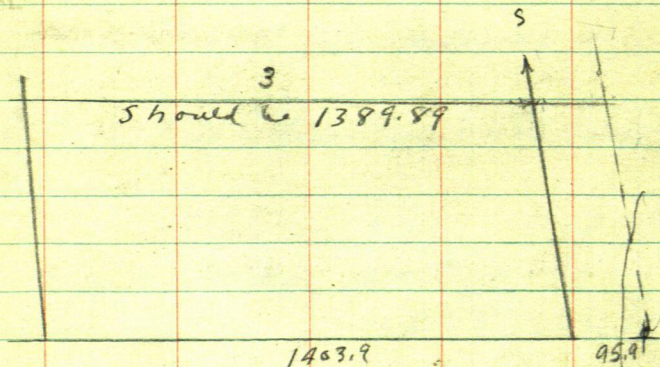 S
3
Should be 1389.89
1403.9 95.9